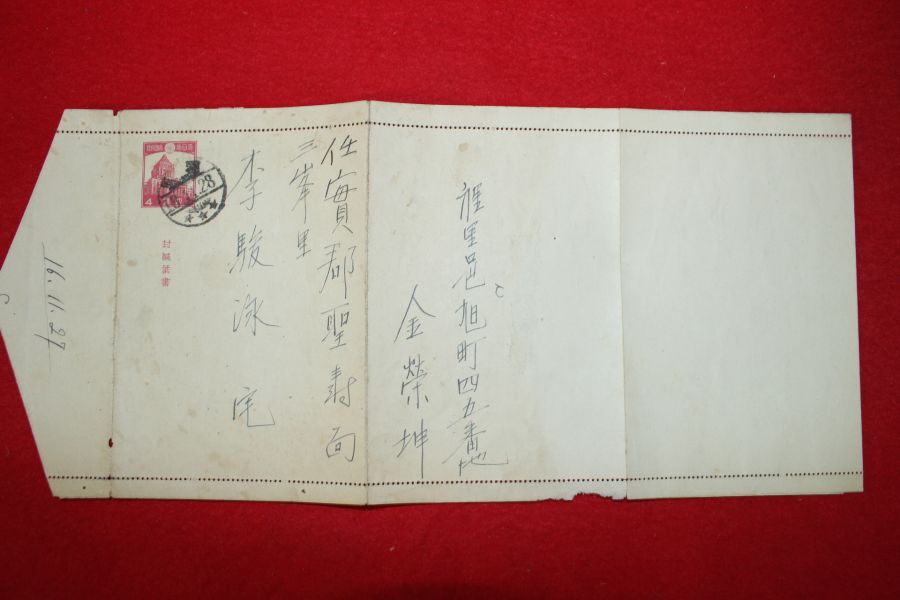 裡里邑旭町四五番地
金榮坤
任實郡聖寿面
三峯里
李駿泳宅
4
28
封緘葉書
16.11.27